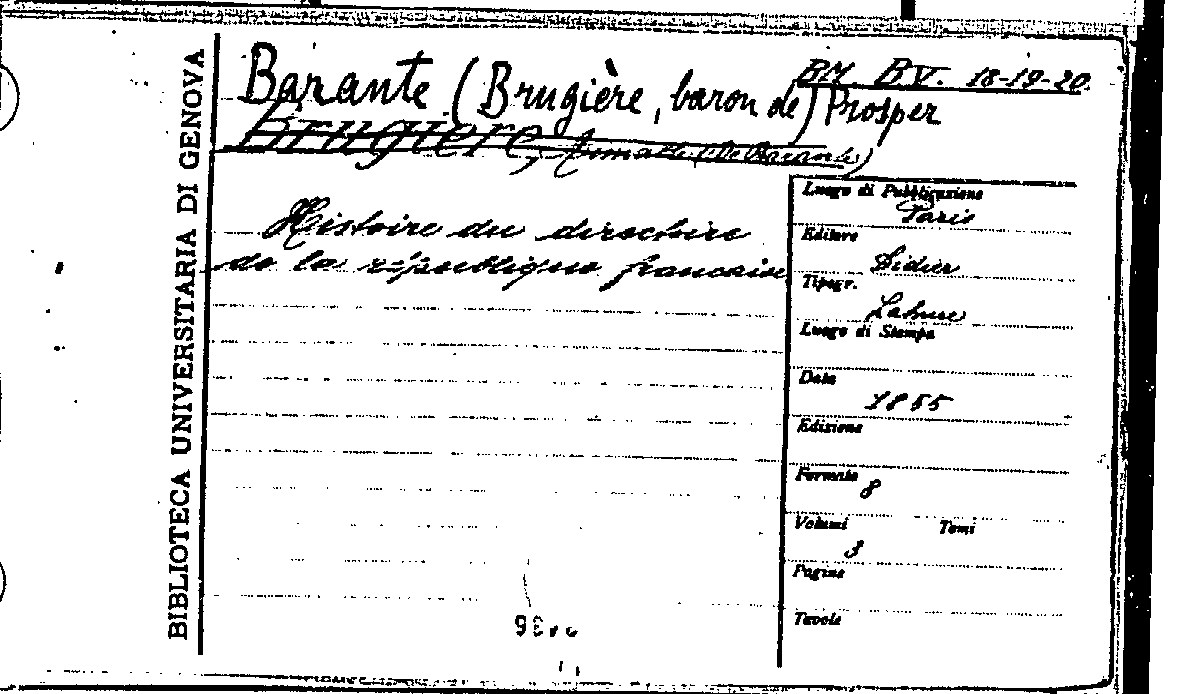 BIBLIOTECA UNIVERSITARIA DI GENOVA
BM B.V. 18-19-20.
Barante (Brugière, baron de) Prosper
Brugiere, (De Barante)
Histoire du directoire
de la république francaise
Luogo di Pubblicazione
Paris
Editore
Didier
Tipogr.
Lahure
Luogo di Stampa
Data
1855
Edizione
Formato
8
Volumi Tomi
3
Pagine
Tavole